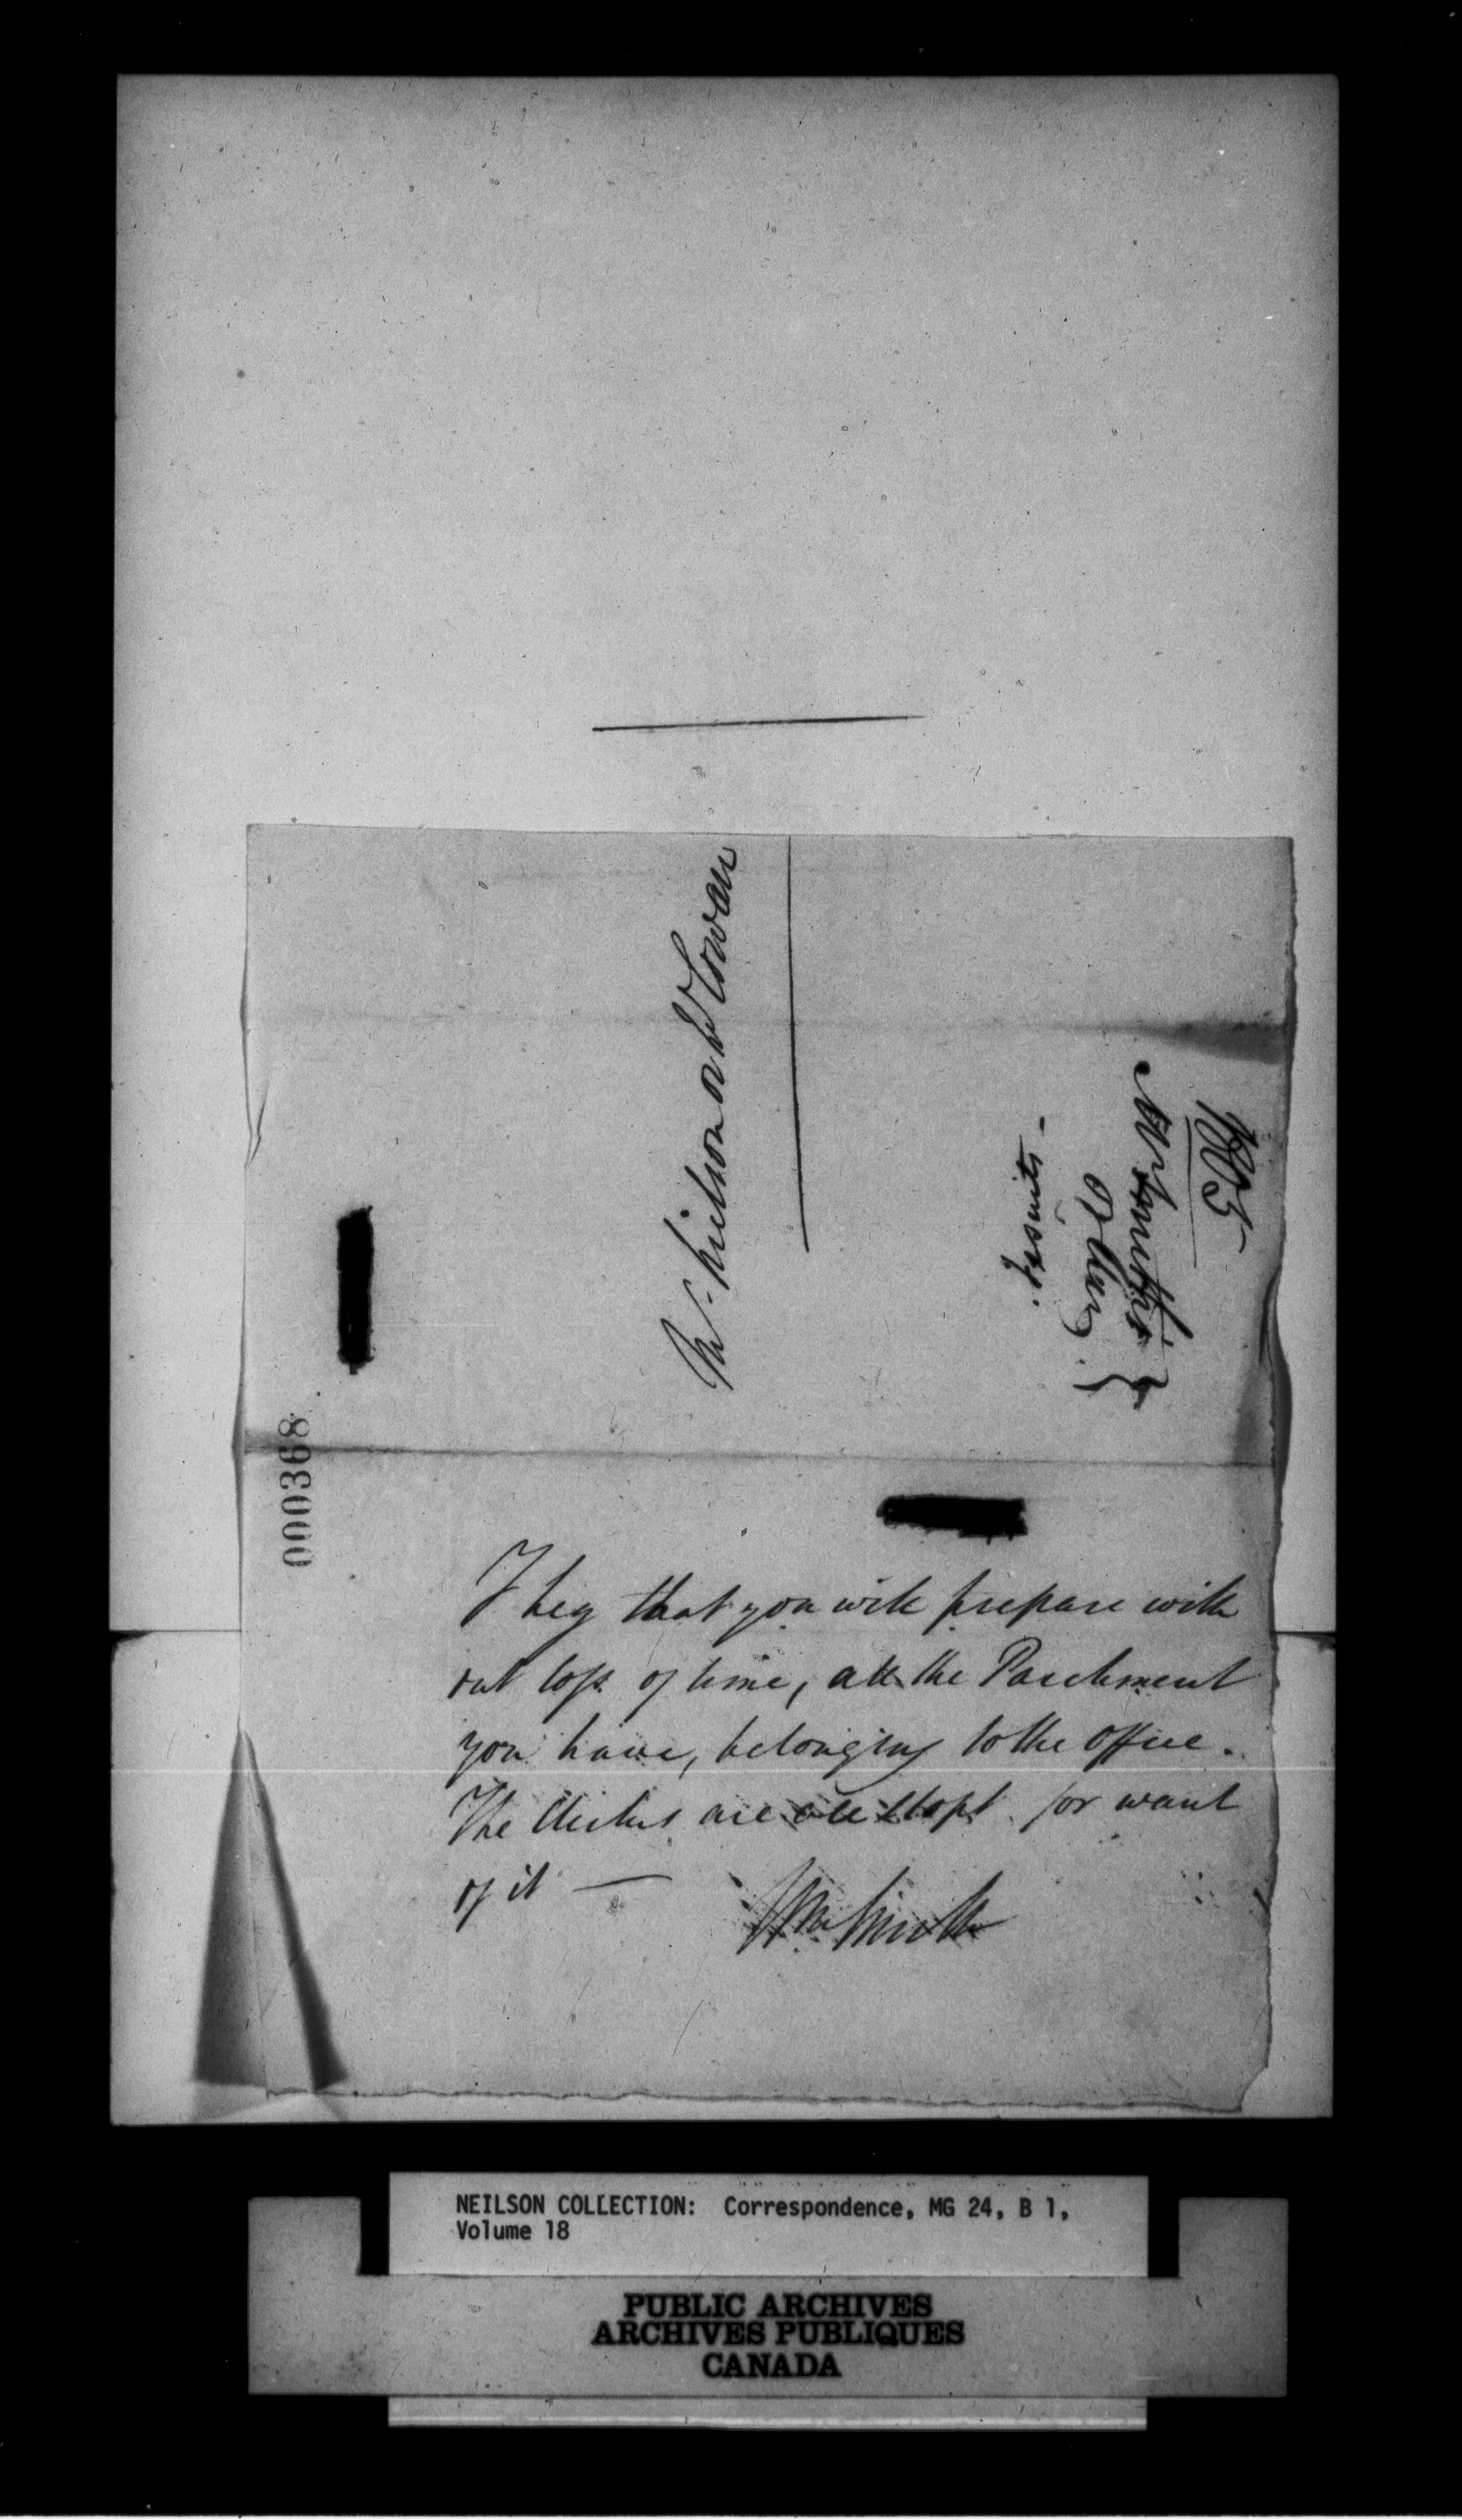 Mr. Neilson or Mr Cowan
Jesuits -
1805
Wm Smith's
Order
000368
I beg that you will prepare with
out loss of time, all the Parchment
you have, belonging to the office.
The Clerks are all stopt for want
of it —
Wm Smith
NEILSON COLLECTION: Correspondence, MG 24, B 1,
Volume 18
PUBLIC ARCHIVES
ARCHIVES PUBLIQUES
CANADA